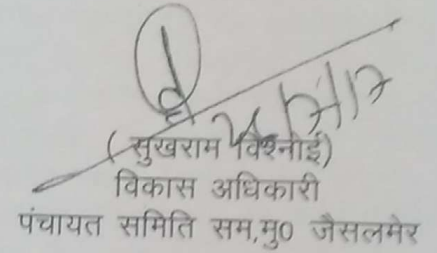 (सुखराम विश्नोई)
विकास अधिकारी
पंचायत समिति सम,मु0 जैसलमेर